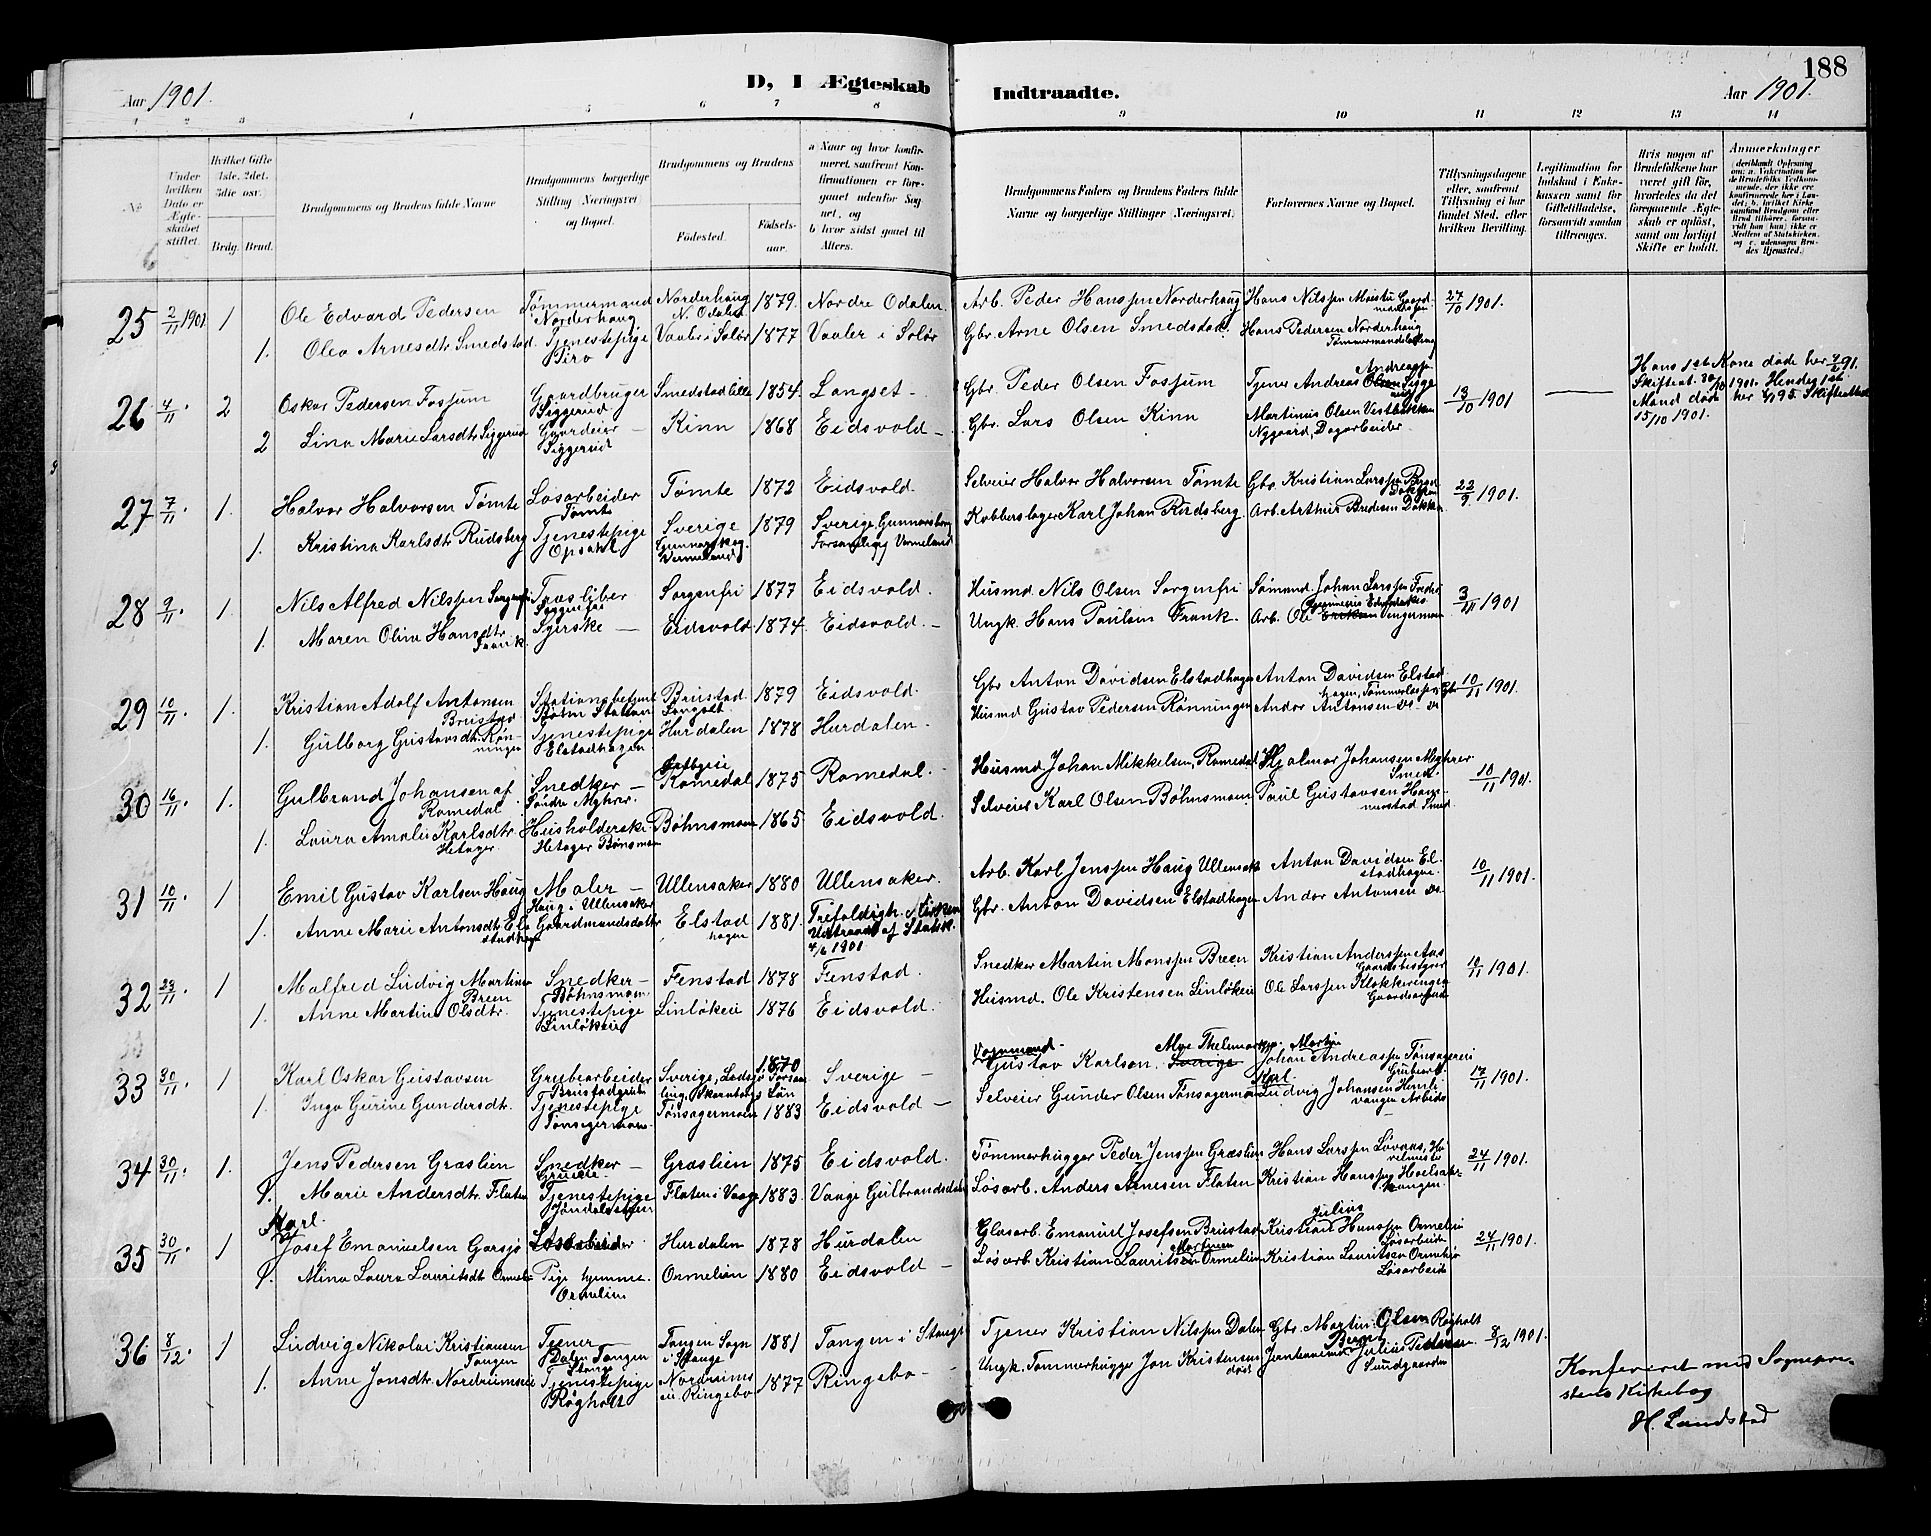 188
Aar 1901.
D, I Ægteskab Indtraadte.
Aar 1901.
1 2 3 4 5 6 7 8 9 10 11 12 13 14
No.
Under hvilken Dato er Ægteskabet stiftet.
Hvilket Gifte 1ste, 2det, 3die osv.
Brdg. Brud.
Brudgommens og Brudens fulde Navne
Brudgommens borgerlige Stilling (Næringsvei) og Bopæl.
Brudgommens og Brudens
Fødested.
Fødselsaar.
a Naar og hvor konfirmeret, saafremt Konfirmationen er foregaaet udenfor Sognet, og
b hvor sidst gaaet til Alters.
Brudgommens Faders og Brudens Faders fulde Navne og borgerlige Stillinger (Næringsvei.)
Forlovernes Navne og Bopæl.
Tillysningsdagene eller, saafremt Tillysning ei har fundet Sted, efter hvilken Bevilling.
Legitimation for Indskud i Enkekassen samt for Giftetilladelse, forsaavidt saadan tiltrænges.
Hvis nogen af Brudefolkene har været gift før, hvorledes da det foregaaende Ægteskab er opløst, samt om lovligt Skifte er holdt.
Anmerkninger
25 2/11 1901 1 Ole Edvard Pedersen Tømmermand Norderhaug Norderhaug N. Odalen 1879. Nordre Odalen. Arb. Peder Hanssen Norderhaug Hans Nilssen Moistu Gaardmandssøn 27/10 1901.
1. Olea Arnesdtr. Smedstad. Tjenestepige Piro Vaaler i Solør 1877 Vaaler i Solør Gbr. Arne Olsen Smedstad. Hans Pedersen Norderhaug
26 4/11 2 Oskar Pedersen Fossum Gaardbruger Siggerud Smedstad lille 1854. Langset - Gbr. Peder Olsen Fossum Tjener Andreas Olsen 13/10 1901
2 Lina Marie Larsdtr. Siggerud Gaardeier - Siggerud Kinn 1868 Eidsvold - Gbr. Lars Olsen Kinn Martinus Olsen Vestbakken Nygaard, Dagarbeider.
Hans 1ste Kone døde her 91. Skifteat. 30/10 1901. Hendes 1ste Mand døde her 95. Skifteattest 15/10 1901.
27 7/11. 1. Halvor Halvorsen Tømte Løsarbeider Tømte Tømte 1872 Eidsvold. Selveier Halvor Halvorsen Tømte Gbr. Kristian Larssen 22/9 1901.
1. Kristina Karlsdtr. Rudsberg Tjenestepige Opsahl Sverige 1879 Sverige, Gunnarskog Forsamling Vermeland Kobberslager Karl Johan Rudsberg Arb. Arthur Dokken
28 9/11. 1. Nils Alfred Nilssen Sorgenfri Træsliber Sorgenfri 1877 Eidsvold. Husmd. Nils Olsen Sorgenfri Sømand Johan Larssen 3/11 1901
1. Maren Olina Hansdtr. Frank. Syerske - Eidsvold 1874. Eidsvold. - Ungk. Hans Paulsen Frank. Arb. Ole
29 10/11. 1. Kristian Adolf Antonsen Brustad Stationsbetjent Bøhn Station Brustad Langset 1879 Eidsvold. Gbr. Anton Davidsen Elstadhagen Anton Davidsen Elstadhagen, 10/11 1901.
1. Gulborg Gustavsdtr. Rønningen Tjenestepige Elstadhagen Hurdalen 1878 Hurdalen. Husmd Gustav Pedersen Rønningen Andor Antonsen do - do
30 16/11. 1. Gulbrand Johansen af Romedal. Snedker - Søndre Myhrer. Romedal 1875 Romedal. - Husmd. Johan Mikkelsen, Romedal Hjalmar Johansen Myhrer Smed. 10/11 1901.
1. Laura Amalie Karlsdtr. Hetager. Husholderske Hetager Bønsmoen Bøhnsmoen 1865 Eidsvold. Selveier Karl Olsen Bøhnsmoen Paul Gustavsen Smed.
31 10/11. 1 Emil Gustav Karlsen Haug Maler - Haug i Ullensaker Ullensaker 1880 Ullensaker. Arb. Karl Jenssen Haug Ullensak Anton Davidsen Elstadhagen. 10/11 1901.
1. Anne Marie Antonsdtr. Elstadhagen Gaardmandsdatter Elstadhagen 1881. Trefoldigh. Kirken Udtraadt af Statsk. 4/6 1901 Gbr. Anton Davidsen Elstadhagen Andor Antonsen do.
32 23/11. 1 Malfred Ludvig Martinsen Breen Snedker - Bøhnsmoen Fenstad 1878 Fenstad. Snedker Martin Monssen Breen Kristian Anderssen Aas Gaardsbestyrer 10/11 1901.
1. Anne Martine Olsdtr. Tjenestepige Linløkeie Linløkeie 1876 Eidsvold. Husmd. Ole Kristensen Linløkeie Ole Larssen Klokkerengen
33 30/11. 1 Karl Oskar Gustavsen Grubearbeider Sverige, 1870 Sverige - Vognmand Gustav Karlson. Sverige Johan Andreassen Tønsagereie 17/11 1901.
1. Inga Gurine Gundersdtr. Tjenestepige Tønsagermoen. Tønsagermoen 1883 Eidsvold - Selveier Gunder Olsen Tønsagermoen Karl Ludvig Johansen
34 30/11. 1. Jens Pedersen Græslien Snedker - Græslien 1875 Eidsvold. Tømmerhugger Peder Jenssen Græslien Hans Larssen Løvaas, 24/11 1901.
1. Marie Andersdtr. Flaten Tjenestepige Flaten i Vaage 1883. Vaage Gulbrandsdalen Løsarb. Anders Arnesen Flaten Kristian Hanssen
35 30/11. 1 Karl Josef Emanuelsen Garsjø Løsarbeider Hurdalen 1878 Hurdalen Glasarb. Emanuel Josefsen Brustad Kristian Julius Hanssen Ormelien Løsarbeider 24/11 1901.
1. Mina Laura Lauritsdtr. Ormelien Pige hjemme. Ormelien Ormelien 1880 Eidsvold - Løsarb. Kristian Lauritsen Ormelien Kristian Lauritsen Ormelien Løsarbeider
36 8/12. 1 Ludvig Nikolai Kristiansen Tangen Tjener Dalen Tangen Stange Tangen Sogn i Stange 1881 Tangen i Stange Tjener Kristian Nilssen Dalen Gbr. Martin Olsen Røgholt 8/12 1901.
1. Anne Jonsdtr. Nordrumseie Tjenestepige Røgholt Nordrumseie. Ringebo 1877 Ringebo - Ungk. Tømmerhugger Jon Kristensen død Julius Pedersen Sundgaarden
Konfereret med Sogneprestens Kirkebog
H. Landstad